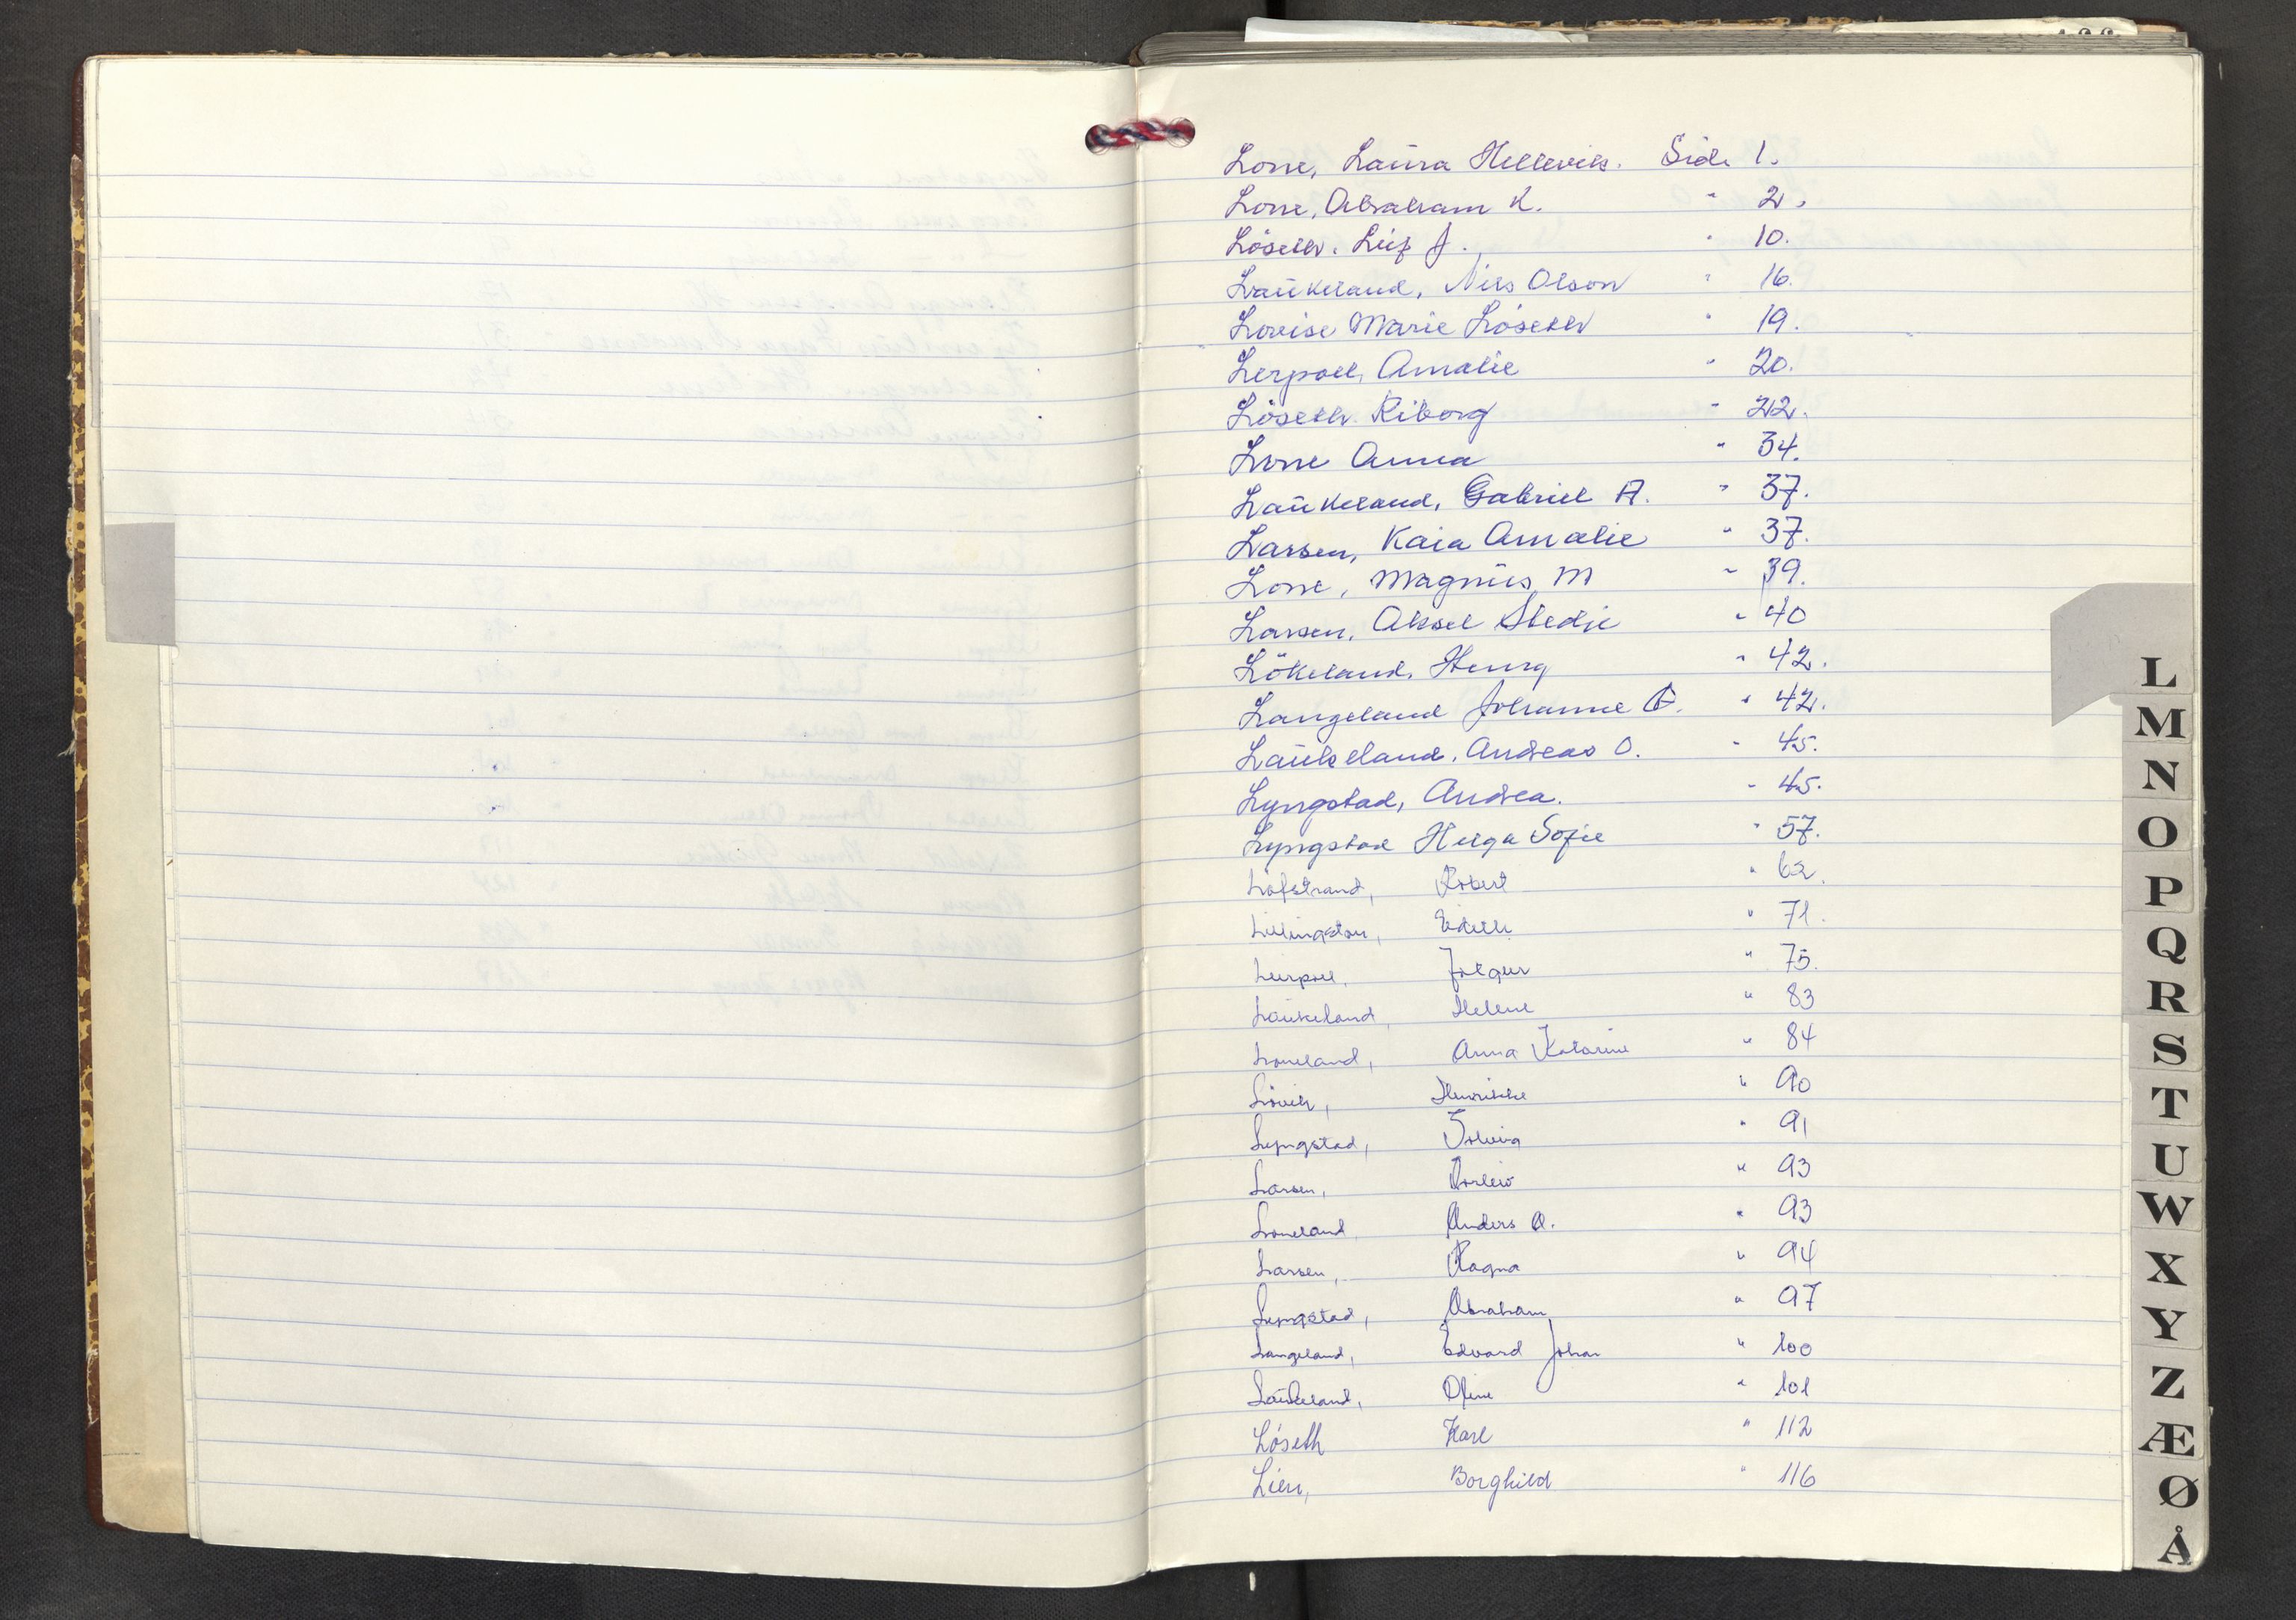 Lone, Laura Hellevik. Side 1.
Lone, Abraham K. " 2.
Löseth. Leif J. " 10.
Laukeland, Nils Olson " 16.
Lovise Marie Löseth " 19.
Lerpoll, Amalie " 20.
Löseth Riborg " 22.
Lone Anna " 34.
Laukeland, Gabriel A. " 37.
Larsen, Kaia Amalie " 37.
Lone, Magnus M " 39.
Larsen, Aksel Stedje " 40
Lökeland, Henry " 42.
Langeland Johanne " 42.
Laukeland, Andreas O. " 45.
Lyngstad, Andrea. " 45.
Lyngstad Helga Sofie " 57.
Löfstrand, Robert " 62.
Lillingston, Edith " 71.
Leirpoll, " 75.
Laukeland, Helene " 83
Loneland, Anna Katarine " 84
Lövik, Henrikke " 90
Lyngstad, Solveig " 91
Larsen, Torleiv " 93
Loneland Anders A. " 93
Larsen, Ragna " 94
Lyngstad, Abraham " 97
Langeland, Edvard Johan " 100
Laukeland, Oline " 101
Löseth Karl " 112
Lien, Borghild " 116
L
M
N
O
P
Q
R
S
T
U
W
X
Y
Z
Æ
Ø
Å